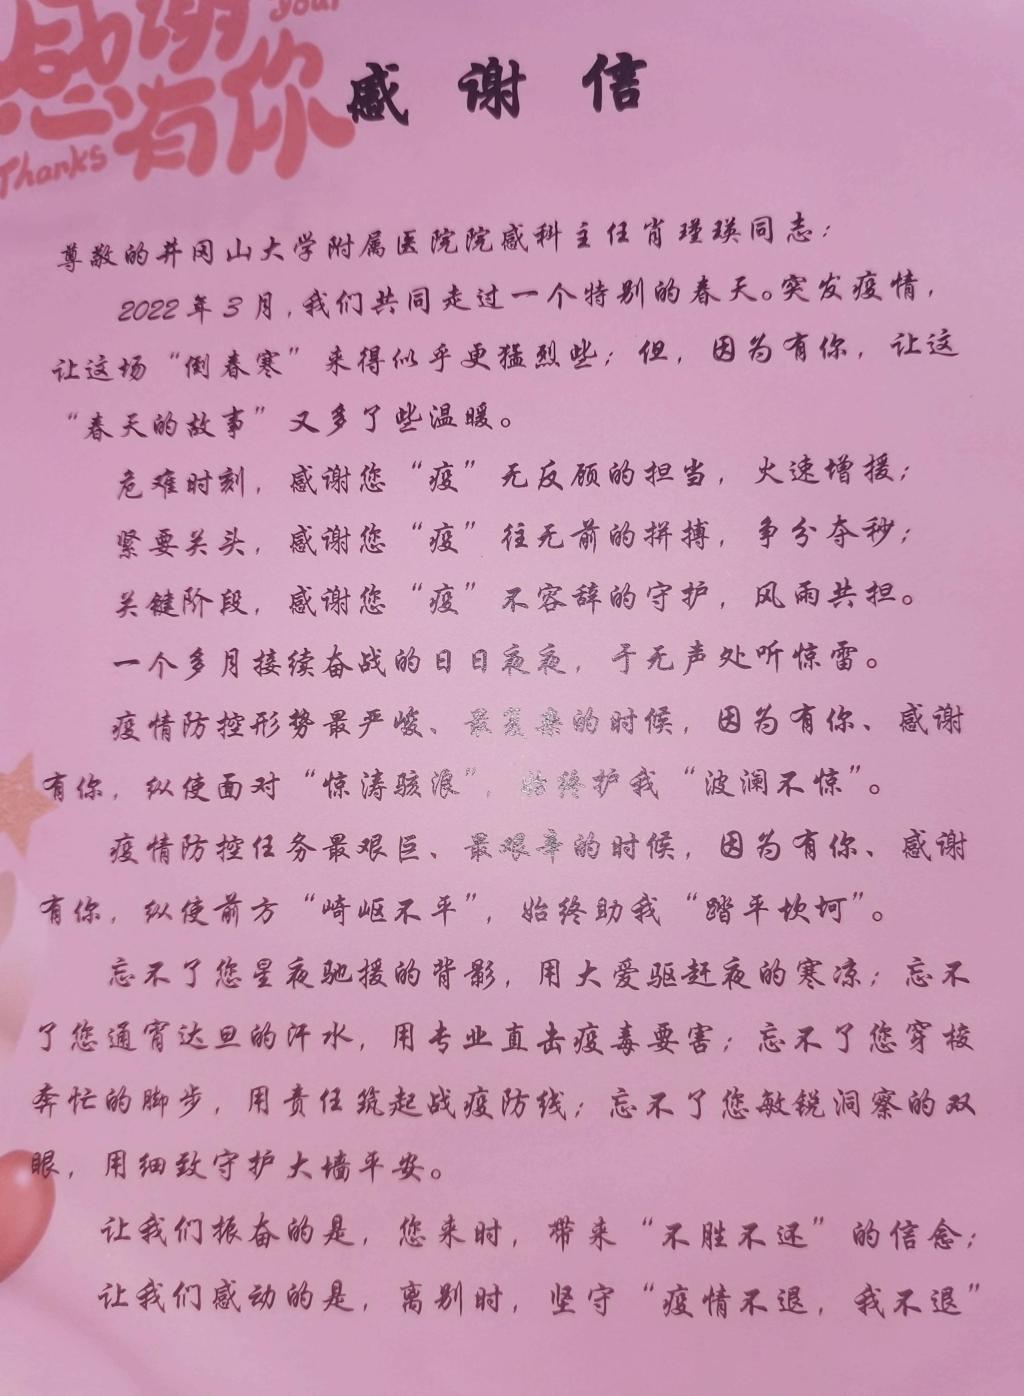 感谢 your
有你
Thanks
感谢信
尊敬的井冈山大学附属医院院感科主任肖瑾瑛同志：
2022年3月，我们共同走过一个特别的春天。突发疫情，
让这场“倒春寒”来得似乎更猛烈些；但，因为有你，让这
“春天的故事”又多了些温暖。
危难时刻，感谢您“疫”无反顾的担当，火速增援；
紧要关头，感谢您“疫”往无前的拼搏，争分夺秒；
关键阶段，感谢您“疫”不容辞的守护，风雨共担。
一个多月接续奋战的日日夜夜，于无声处听惊雷。
疫情防控形势最严峻、最复杂的时候，因为有你、感谢
有你，纵使面对“惊涛骇浪”，始终护我“波澜不惊”。
疫情防控任务最艰巨、最艰辛的时候，因为有你、感谢
有你，纵使前方“崎岖不平”，始终助我“踏平坎坷”。
忘不了您星夜驰援的背影，用大爱驱赶夜的寒凉；忘不
了您通宵达旦的汗水，用专业直击疫毒要害；忘不了您穿梭
奔忙的脚步，用责任筑起战疫防线；忘不了您敏锐洞察的双
眼，用细致守护大墙平安。
让我们振奋的是，您来时，带来“不胜不还”的信念；
让我们感动的是，离别时，坚守“疫情不退，我不退”